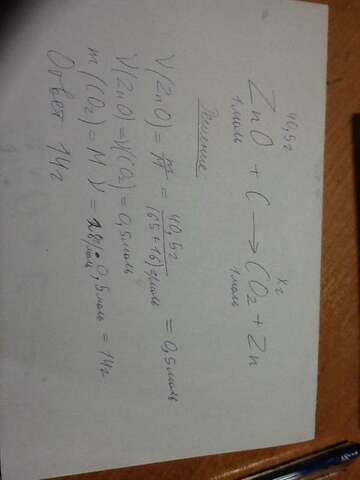 40,5г хг
ZnO + C → CO₂ + Zn
1моль 1моль
Решение
V(ZnO) = m/M = 40,5г/(65+16)г/моль = 0,5моль
V(ZnO) = V(CO₂) = 0,5моль
m(CO₂) = M·V = 28г/моль·0,5моль = 14г
Ответ 14г